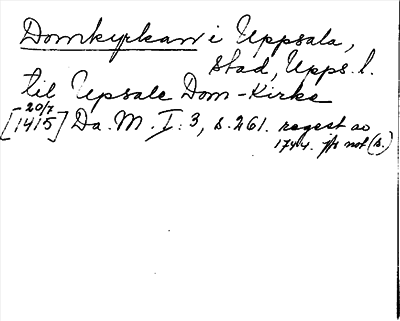 Domkyrkan i Uppsala,
stad, Upps. l.
til Upsale Dom-Kirke
20/7
[1415] Da. M. I: 3, s. 261. regest av
1744. jfr not (s.)